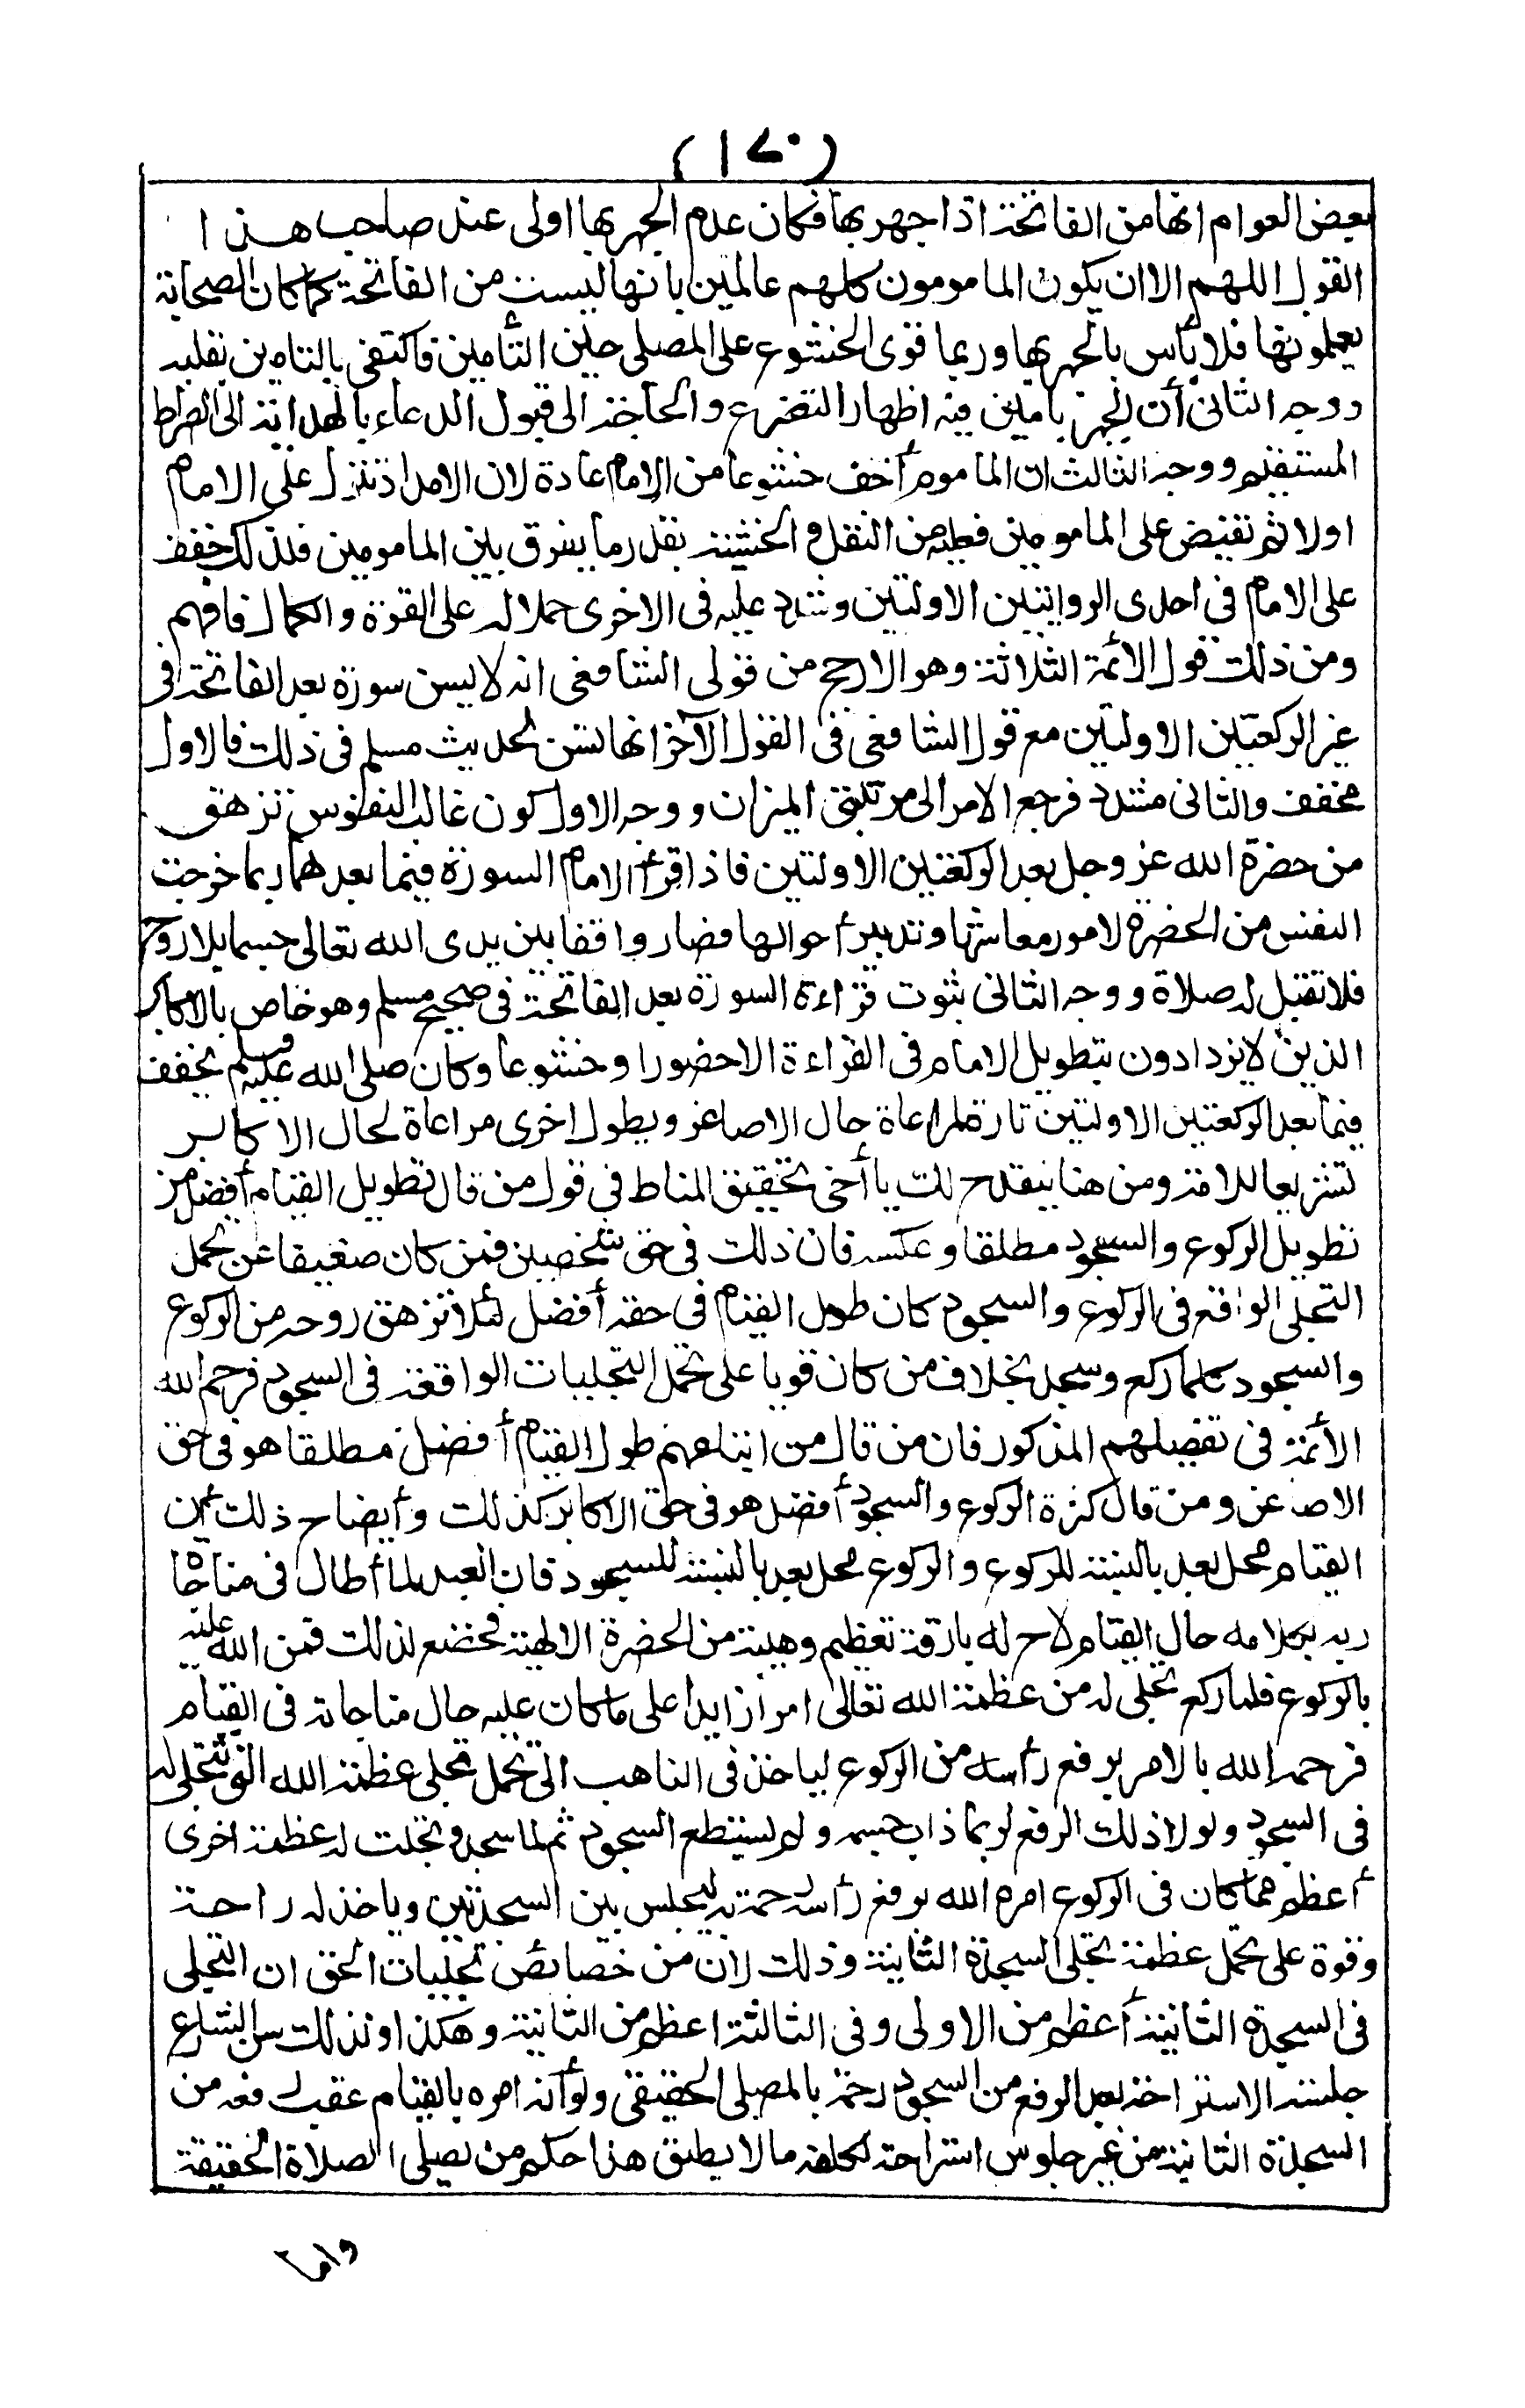 (١٧٠)
بعض العوام انها من الفاتحة اذا جهر بها فكان عدم الجهر بها اولى عند صاحب هذا
القول اللهم الا ان يكون المامومون كلهم عالمين بانها ليست من الفاتحة كما كان الصحابة
يعلمونها فلا بأس بالجهر بها وربما قوى الخشوع على المصلى حين التأمين فاكتفى بالتامين بقلبه
ووجه الثانى أن الجهر بامين فيه اظهار التضرع والحاجة الى قبول الدعاء بالهداية الى الصراط
المستقيم ووجه الثالث ان الماموم أخف خشوعا من الامام عادة لان الامداد تنزل على الامام
اولا ثم تفيض على المامومين فعليه من الثقل والخشية بقدر ما يفرق بين المامومين فلذلك خفف
على الامام فى احدى الروايتين الاوليين وشدد عليه فى الاخرى حملا له على القوة والكمال فافهم
ومن ذلك قول الأئمة الثلاثة وهو الارجح من قولى الشافعى انه لا يسن سورة بعد الفاتحة فى
غير الركعتين الاوليين مع قول الشافعى فى القول الآخر انها تسن لحديث مسلم فى ذلك فالاول
مخفف والثانى مشدد فرجع الامر الى مرتبتى الميزان ووجه الاول كون غالب النفوس تزهق
من حضرة الله عز وجل بعد الركعتين الاولتين فاذا قرأ الامام السورة فيما بعدهما ربما خرجت
النفس من الحضرة لامور معاشها وتدبير أحوالها فصار واقفا بين يدى الله تعالى جسما بلا روح
فلا تقبل له صلاة ووجه الثانى ثبوت قراءة السورة بعد الفاتحة فى صحيح مسلم وهو خاص بالاكابر
الذين لا يزدادون بتطويل الامام فى القراءة الا حضورا وخشوعا وكان صلى الله عليه وسلم يخفف
فيما بعد الركعتين الاولتين تارة لمراعاة حال الاصاغر ويطول اخرى مراعاة لحال الاكابر
تشريعا للامة ومن هنا ينقدح لك يا أخى تحقيق المناط فى قول من قال تطويل القيام أفضل من
تطويل الركوع والسجود مطلقا وعكسه فان ذلك فى حق شخصين فمن كان ضعيفا عن تحمل
التجلى الواقع فى الركوع والسجود كان طول القيام فى حقه أفضل لئلا تزهق روحه من الركوع
والسجود كلما ركع وسجد بخلاف من كان قويا على تحمل التجليات الواقعة فى السجود فرحم الله
الأئمة فى تفصيلهم المذكور فان من قال من اتباعهم طول القيام أفضل مطلقا هو فى حق
الاصاغر ومن قال كثرة الركوع والسجود أفضل هو فى حق الاكابر كذلك وأيضاح ذلك أن
القيام محل بعد بالنسبة للركوع والركوع محل بعد بالنسبة للسجود فان العبد لما أطال فى مناجاة
ربه بكلامه حال القيام لاح له بارقة تعظيم وهيبة من الحضرة الالهية فخضع لذلك فمن الله عليه
بالركوع فلما ركع تجلى له من عظمة الله تعالى امر زايدا على ما كان عليه حال مناجاته فى القيام
فرحمه الله بالامر برفع رأسه من الركوع لياخذ فى التاهب الى تحمل تجلى عظمة الله التى تتجلى له
فى السجود ولولا ذلك الرفع لربما ذاب جسمه ولم يستطع السجود ثم لما سجد وتجلت له عظمة اخرى
أعظم مما كان فى الركوع امره الله برفع رأسه رحمة به ليجلس بين السجدتين وياخذ له راحة
وقوة على تحمل عظمة تجلى السجدة الثانية وذلك لان من خصائص تجليات الحق ان التجلى
فى السجدة الثانية أعظم من الاولى وفى الثالثة اعظم من الثانية وهكذا ولذلك سن الشارع
جلسة الاستراحة بعد الرفع من السجود رحمة بالمصلى الحقيقى ولو أنه امره بالقيام عقب رفعه من
السجدة الثانية من غير جلوس استراحة لكلفه ما لا يطيق هذا حكم من يصلى الصلاة الحقيقة
واما